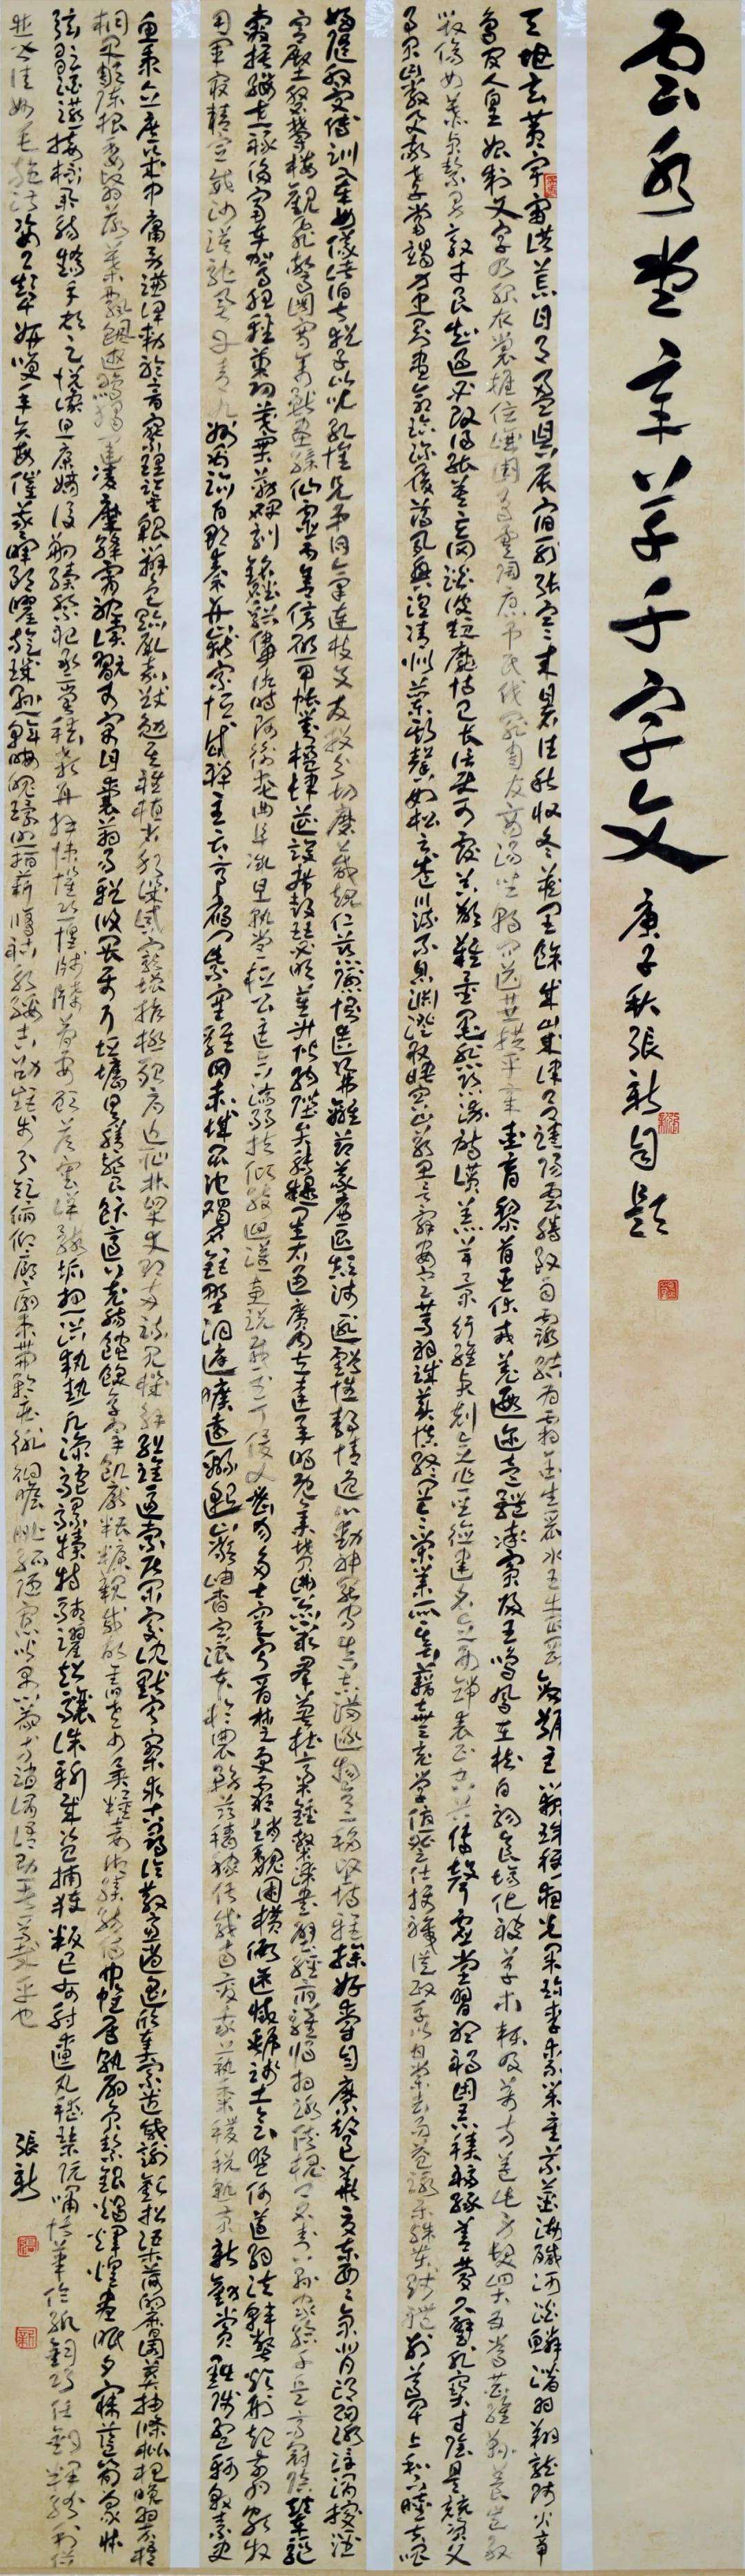 雲水堂章草千字文
庚子秋張新自題
天地玄黃宇宙洪荒日月盈昃辰宿列張寒來暑往秋收冬藏閏餘成歲律呂調陽雲騰致雨露結為霜金生麗水玉出崑岡劍號巨闕珠稱夜光果珍李柰菜重芥薑海鹹河淡鱗潛羽翔龍師火帝
鳥官人皇始制文字乃服衣裳推位讓國有虞陶唐弔民伐罪周發殷湯坐朝問道垂拱平章愛育黎首臣伏戎羌遐邇壹體率賓歸王鳴鳳在樹白駒食場化被草木賴及萬方蓋此身髮四大五常恭惟鞠養豈敢
毀傷女慕貞絜男效才良知過必改得能莫忘罔談彼短靡恃己長信使可覆器欲難量墨悲絲染詩讚羔羊景行維賢剋念作聖德建名立形端表正空谷傳聲虛堂習聽禍因惡積福緣善慶尺璧非寶寸陰是競資父
事君曰嚴與敬孝當竭力忠則盡命臨深履薄夙興溫凊似蘭斯馨如松之盛川流不息淵澄取映容止若思言辭安定篤初誠美慎終宜令榮業所基籍甚無竟學優登仕攝職從政存以甘棠去而益詠樂殊貴賤禮別尊卑上和下睦夫唱
婦隨外受傅訓入奉母儀諸姑伯叔猶子比兒孔懷兄弟同氣連枝交友投分切磨箴規仁慈隱惻造次弗離節義廉退顛沛匪虧性靜情逸心動神疲守真志滿逐物意移堅持雅操好爵自縻都邑華夏東西二京背邙面洛浮渭據涇
宮殿盤鬱樓觀飛驚圖寫禽獸畫綵仙靈丙舍傍啟甲帳對楹肆筵設席鼓瑟吹笙升階納陛弁轉疑星右通廣內左達承明既集墳典亦聚群英杜稾鍾隸漆書壁經府羅將相路俠槐卿戶封八縣家給千兵高冠陪輦驅
轂振纓世祿侈富車駕肥輕策功茂實勒碑刻銘磻溪伊尹佐時阿衡奄宅曲阜微旦孰營桓公匡合濟弱扶傾綺迴漢惠說感武丁俊乂密勿多士寔寧晉楚更霸趙魏困橫假途滅虢踐土會盟何遵約法韓弊煩刑起翦頗牧
用軍最精宣威沙漠馳譽丹青九州禹跡百郡秦并嶽宗恒岱禪主云亭雁門紫塞雞田赤城昆池碣石鉅野洞庭曠遠緜邈巖岫杳冥治本於農務茲稼穡俶載南畝我藝黍稷稅熟貢新勸賞黜陟孟軻敦素史
魚秉直庶幾中庸勞謙謹敕聆音察理鑒貌辨色貽厥嘉猷勉其祗植省躬譏誡寵增抗極殆辱近恥林皋幸即兩疏見機解組誰逼索居閑處沉默寂寥求古尋論散慮逍遙欣奏累遣慼謝歡招渠荷的歷園莽抽條枇杷晚翠梧
桐早凋陳根委翳落葉飄颻遊鵾獨運凌摩絳霄耽讀翫市寓目囊箱易輶攸畏屬耳垣牆具膳餐飯適口充腸飽飫烹宰飢厭糟糠親戚故舊老少異糧妾御績紡侍巾帷房紈扇圓絜銀燭煒煌晝眠夕寐藍筍象牀
弦歌酒讌接杯舉觴矯手頓足悅豫且康嫡後嗣續祭祀烝嘗稽顙再拜悚懼恐惶牋牒簡要顧答審詳骸垢想浴執熱願涼驢騾犢特駭躍超驤誅斬賊盜捕獲叛亡布射遼丸嵇琴阮嘯恬筆倫紙鈞巧任釣釋紛利俗
並皆佳妙毛施淑姿工顰妍笑年矢每催曦暉朗曜璇璣懸斡晦魄環照指薪修祜永綏吉劭矩步引領俯仰廊廟束帶矜莊徘徊瞻眺孤陋寡聞愚蒙等誚謂語助者焉哉乎也
張新